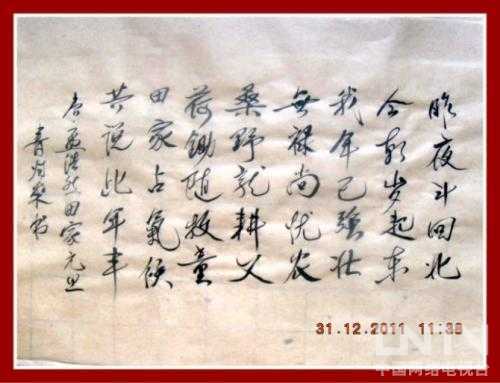 昨夜斗回北
今朝岁起东
我年已强壮
無禄尚忧农
桑野就耕父
荷锄随牧童
田家占氣候
共说此年丰
唐孟浩然田家元旦
青书
31.12.2011 11:38
CNTV
中国网络电视台